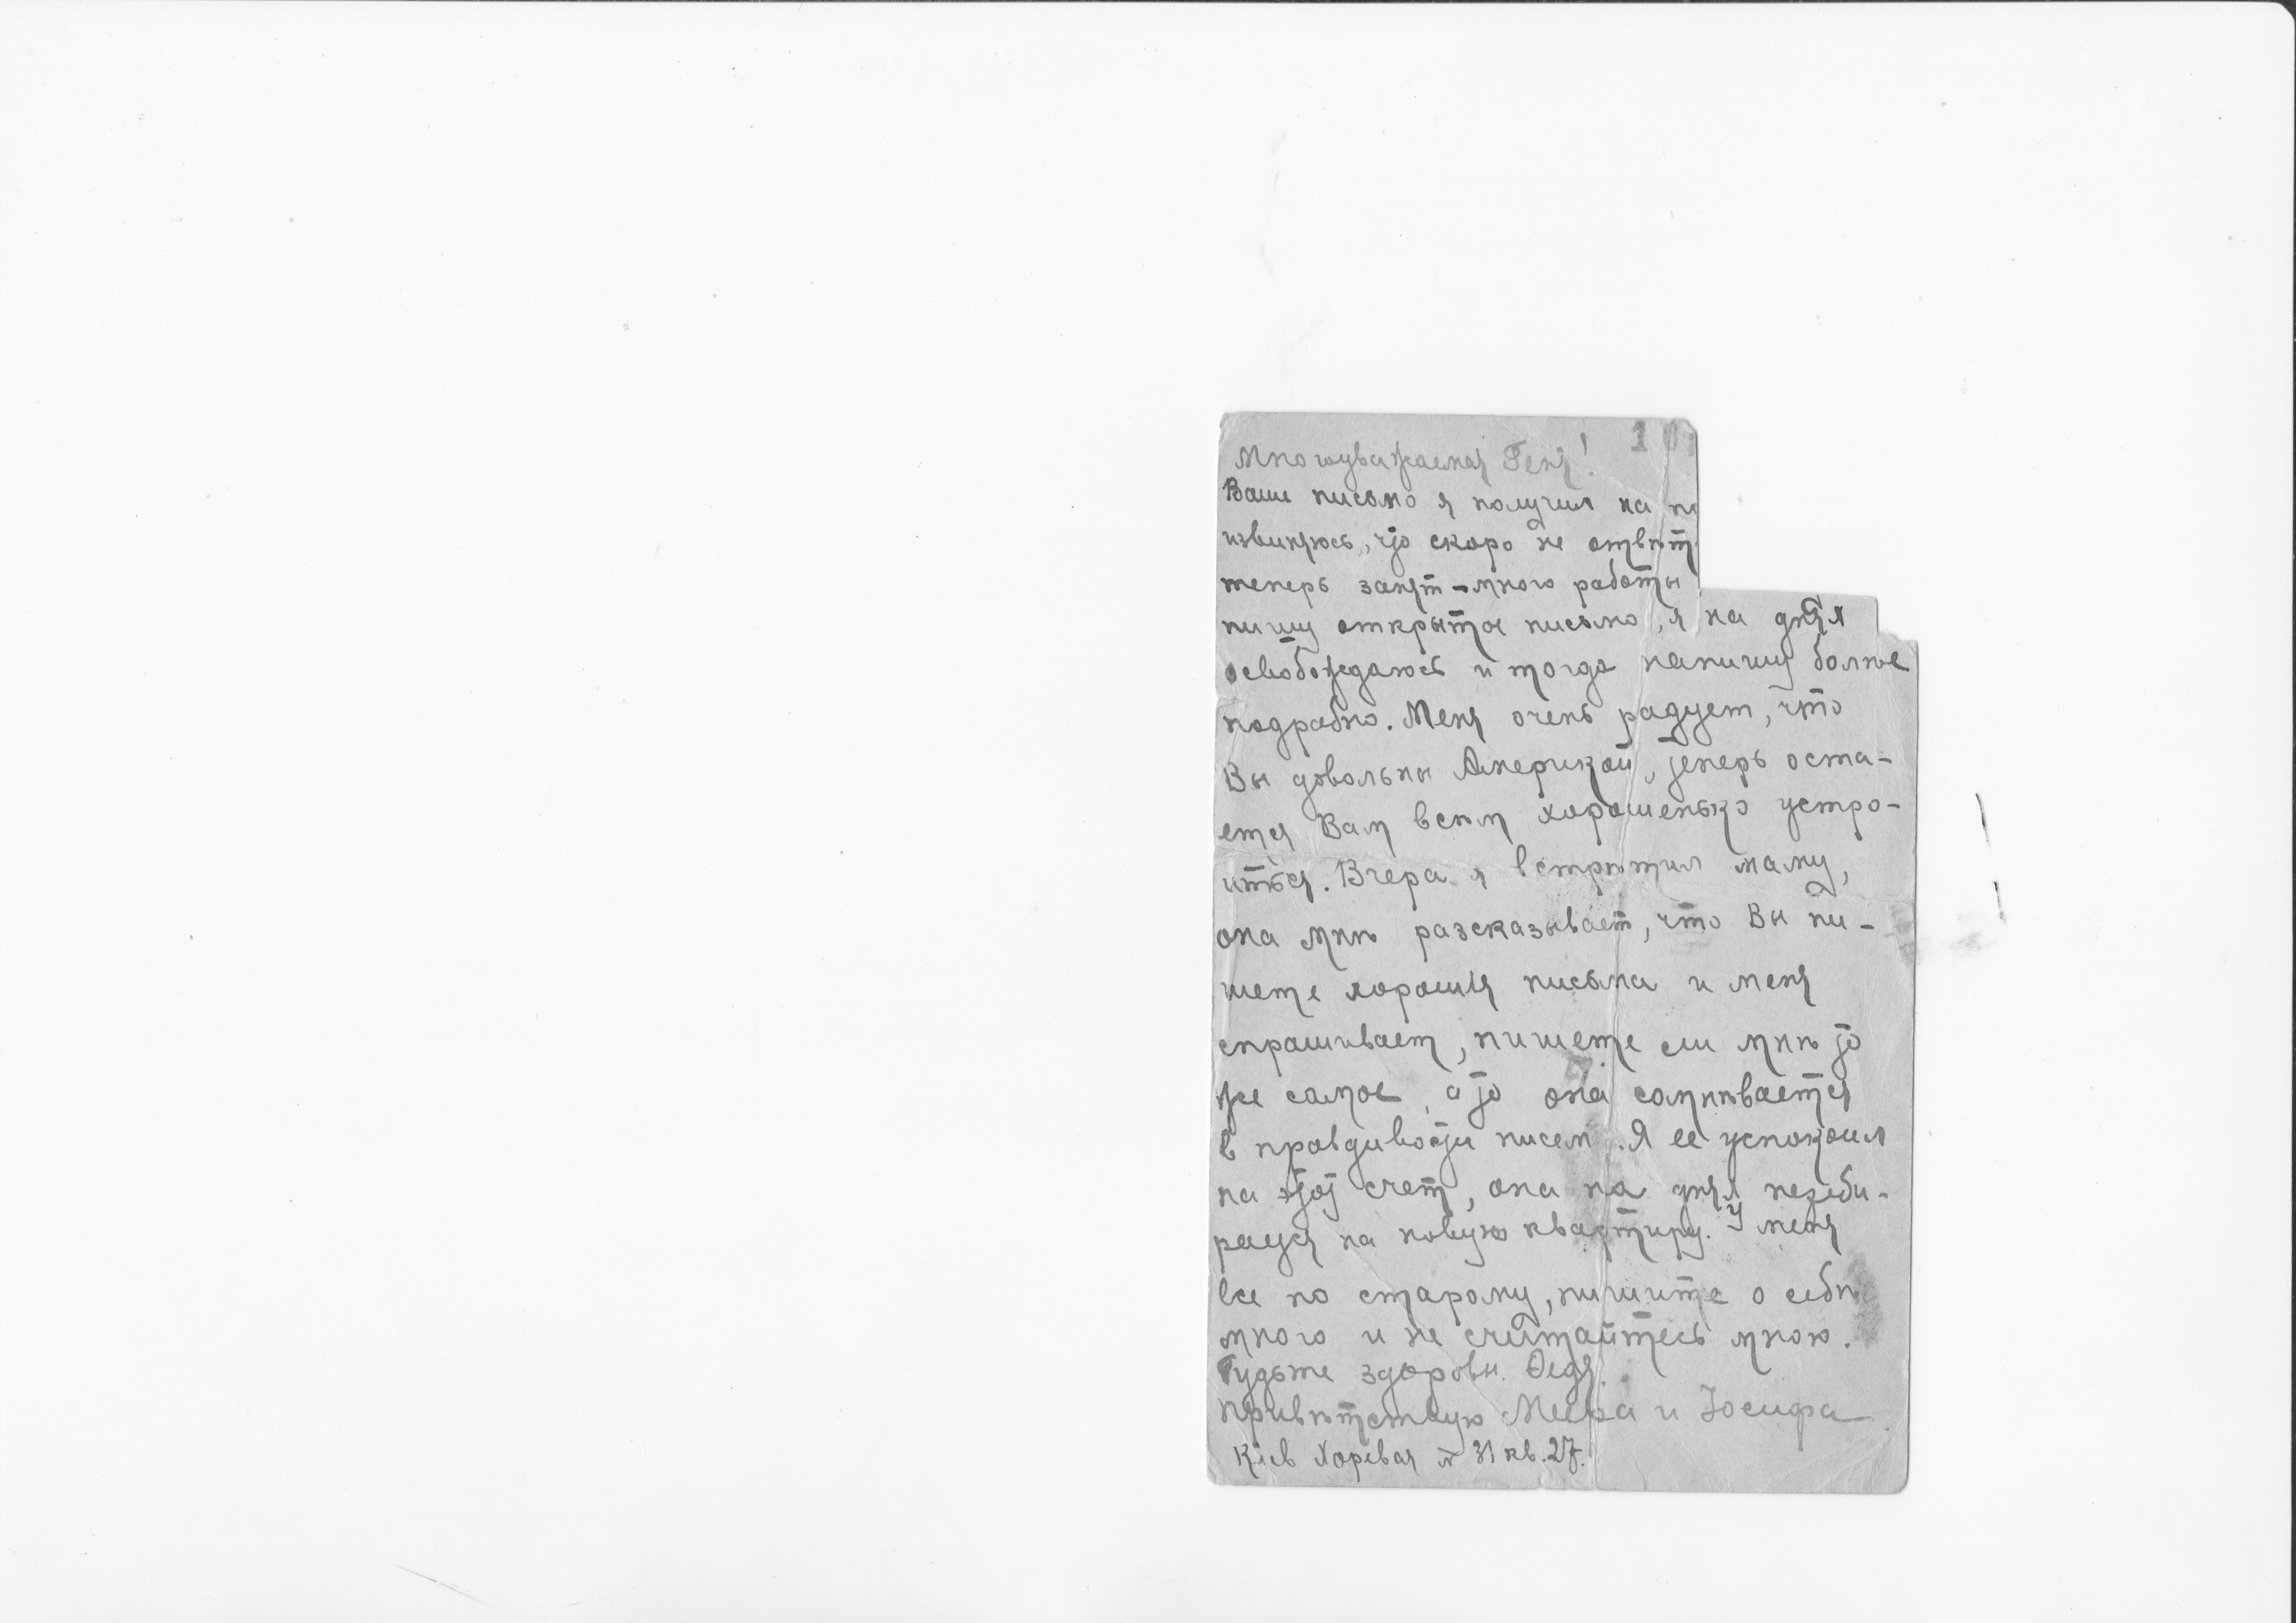 Многоуважаемая Геня! 10
Ваше письмо я получил на
извиняюсь, что скоро не отвѣт
теперь занят – много работы
пишу открытое письмо, я на днях
освобождаюсь и тогда напишу болѣе
подрабно. Меня очень радует, что
Вы довольны Америкой, теперь оста-
ется Вам всѣм хорошенько устро-
иться. Вчера я встрѣтил маму,
она мнѣ разсказывает, что Вы пи-
шете хорошія письма и меня
спрашивает, пишете ли мнѣ то
же самое, а то она сомнѣвается
в правдивости писем. Я ее успокоил
на этот счет, она на днях
на новую квартиру. У меня
все по старому, пишите о себѣ
много и не считайтесь мною.
Будьте здоровы. Федя.
Привѣтствую Меера и Іосифа
Кіев Хоревая № 31 кв. 27.